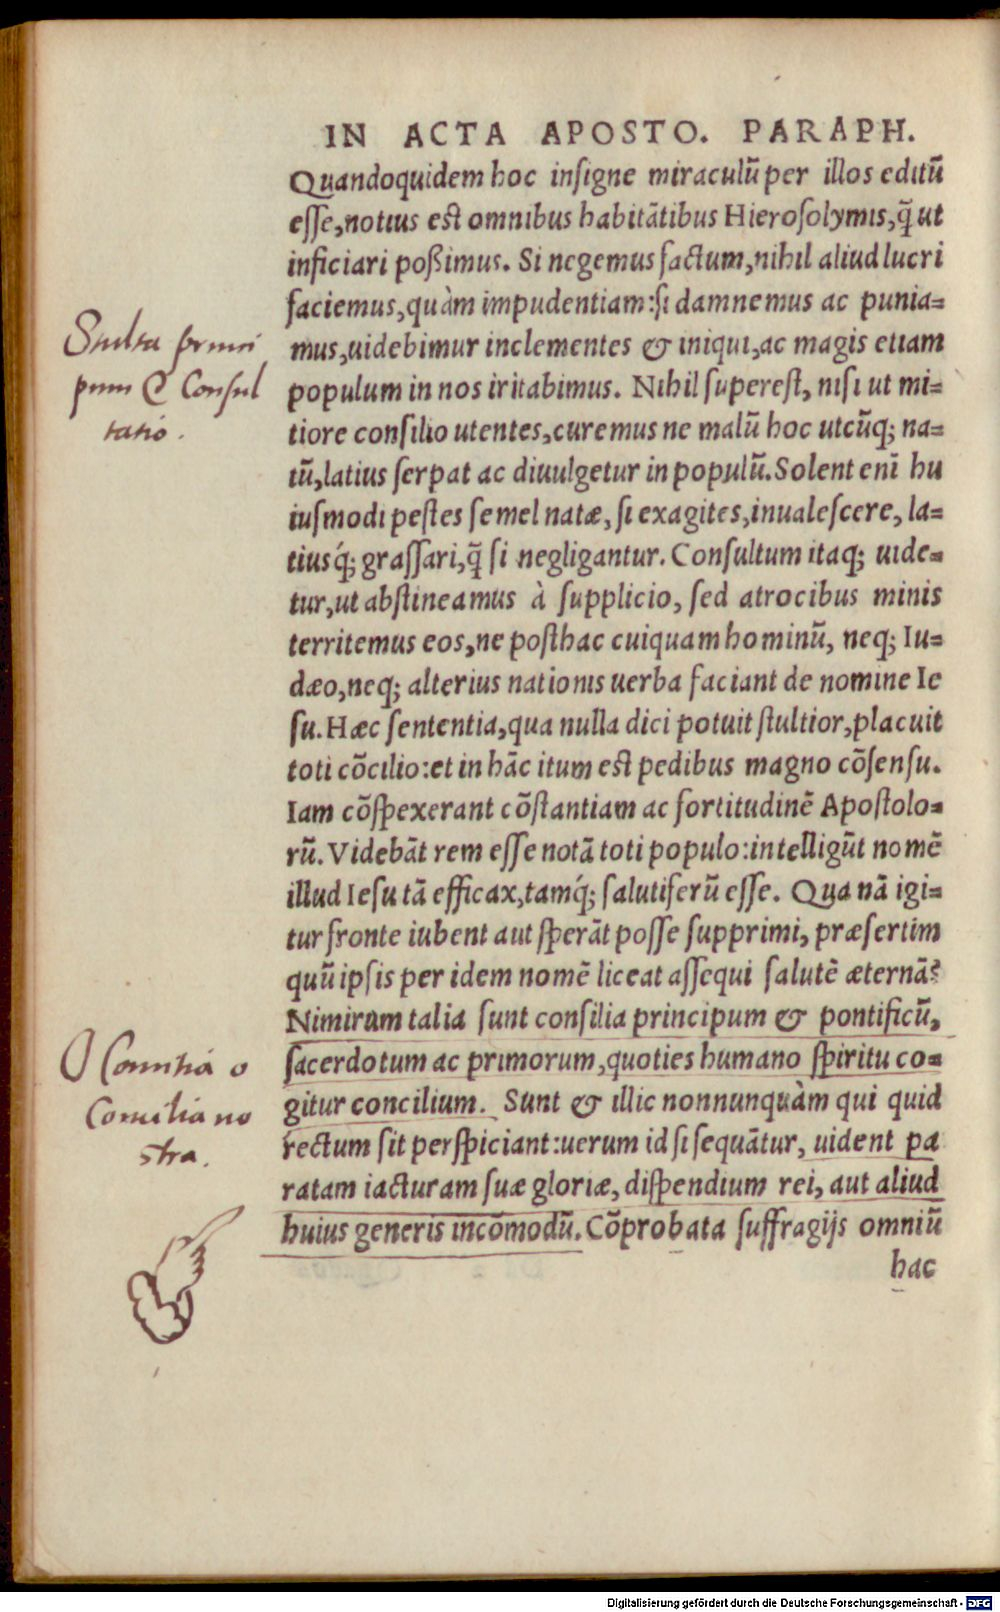 IN ACTA APOSTO. PARAPH.
Quandoquidem hoc insigne miraculū per illos editū
esse, notius est omnibus habitātibus Hierosolymis, q̄ ut
inficiari poßimus. Si negemus factum, nihil aliud lucri
faciemus, quàm impudentiam: si damnemus ac punia=
mus, uidebimur inclementes & iniqui, ac magis etiam
populum in nos iritabimus. Nihil superest, nisi ut mi=
tiore consilio utentes, curemus ne malū hoc utcūq; na=
tū, latius serpat ac diuulgetur in populū. Solent enī hu
iusmodi pestes semel natæ, si exagites, inualescere, la=
tiusq́; grassari, q̄ si negligantur. Consultum itaq; uide=
tur, ut abstineamus à supplicio, sed atrocibus minis
territemus eos, ne posthac cuiquam hominū, neq; Iu=
dæo, neq; alterius nationis uerba faciant de nomine Ie
su. Hæc sententia, qua nulla dici potuit stultior, placuit
toti cōcilio: et in hāc itum est pedibus magno cōsensu.
Iam cōspexerant cōstantiam ac fortitudinē Apostolo=
rū. Videbāt rem esse notā toti populo: intelligūt nomē
illud Iesu tā efficax, tamq́; salutiferū esse. Qua nā igi=
tur fronte iubent aut sperāt posse supprimi, præsertim
quū ipsis per idem nomē liceat assequi salutē æternā?
Nimirum talia sunt consilia principum & pontificū,
sacerdotum ac primorum, quoties humano spiritu co=
gitur concilium. Sunt & illic nonnunquàm qui quid
rectum sit perspiciant: uerum id si sequātur, uident pa
ratam iacturam suæ gloriæ, dispendium rei, aut aliud
huius generis incōmodū. Cōprobata suffragijs omniū
hac
Stulta princi
pum & Consul
tatio.
O Comitia o
Concilia no
stra.
Digitalisierung gefördert durch die Deutsche Forschungsgemeinschaft - DFG